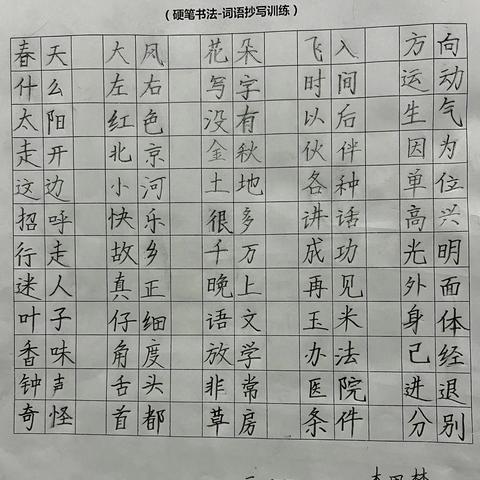 （硬笔书法-词语抄写训练）
春天 大风 花朵 飞入 方向
什么 左右 写字 时间 运动
太阳 红色 没有 以后 生气
走开 北京 金秋 伙伴 因为
这边 小河 土地 各种 单位
招呼 快乐 很多 讲话 高兴
行走 故乡 千万 成功 光明
迷人 真正 晚上 再见 外面
叶子 仔细 语文 玉米 身体
香味 角度 放学 办法 已经
钟声 舌头 非常 医院 进退
奇怪 首都 草房 条件 分别